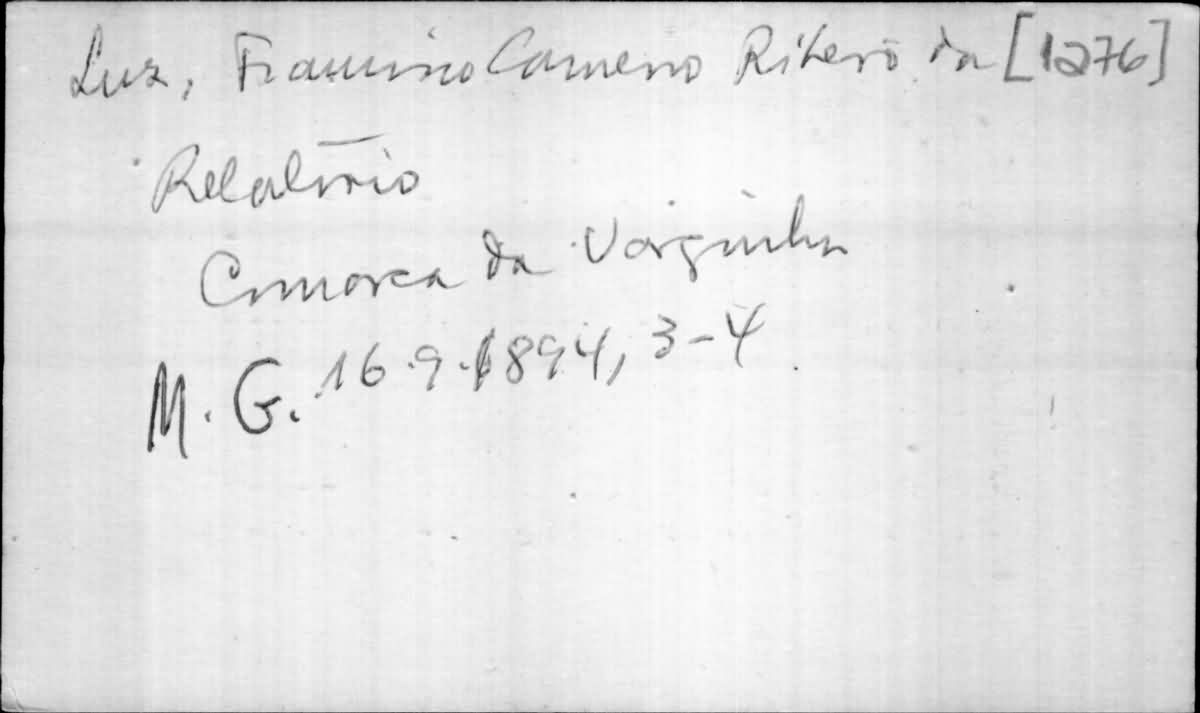 Luz, Francisco Carneiro Ribeiro da [1276]
Relatório
Comarca da Varginha
M. G. 16.9.1894, 3-4